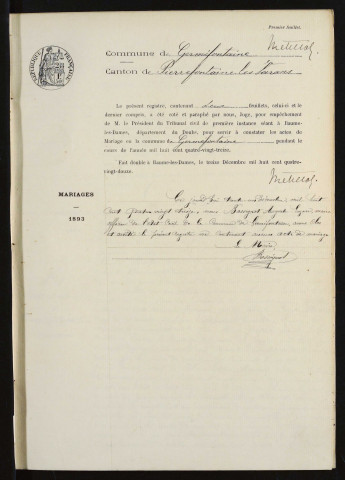 Premier feuillet.
Commune de Germéfontaine
Canton de Pierrefontaine les Varans
RÉPUBLIQUE FRANÇAISE
Le présent registre, contenant deux feuillets, celui-ci et le
dernier compris, a été coté et paraphé par nous, Juge, pour empêchement
de M. le Président du Tribunal civil de première instance séant à Baume-
les-Dames, département du Doubs, pour servir à constater les actes de
Mariage de la commune de Germéfontaine pendant le
cours de l'année mil huit cent quatre-vingt-treize.
Fait double à Baume-les-Dames, le treize Décembre mil huit cent quatre-
vingt-douze.
MARIAGES
1893
trente un décembre mil huit
cent quatre vingt treize, nous
officier de l'état civil de la commune de Germéfontaine, avons clos
et arrêté le présent registre ne contenant aucun acte de mariage
Le Maire